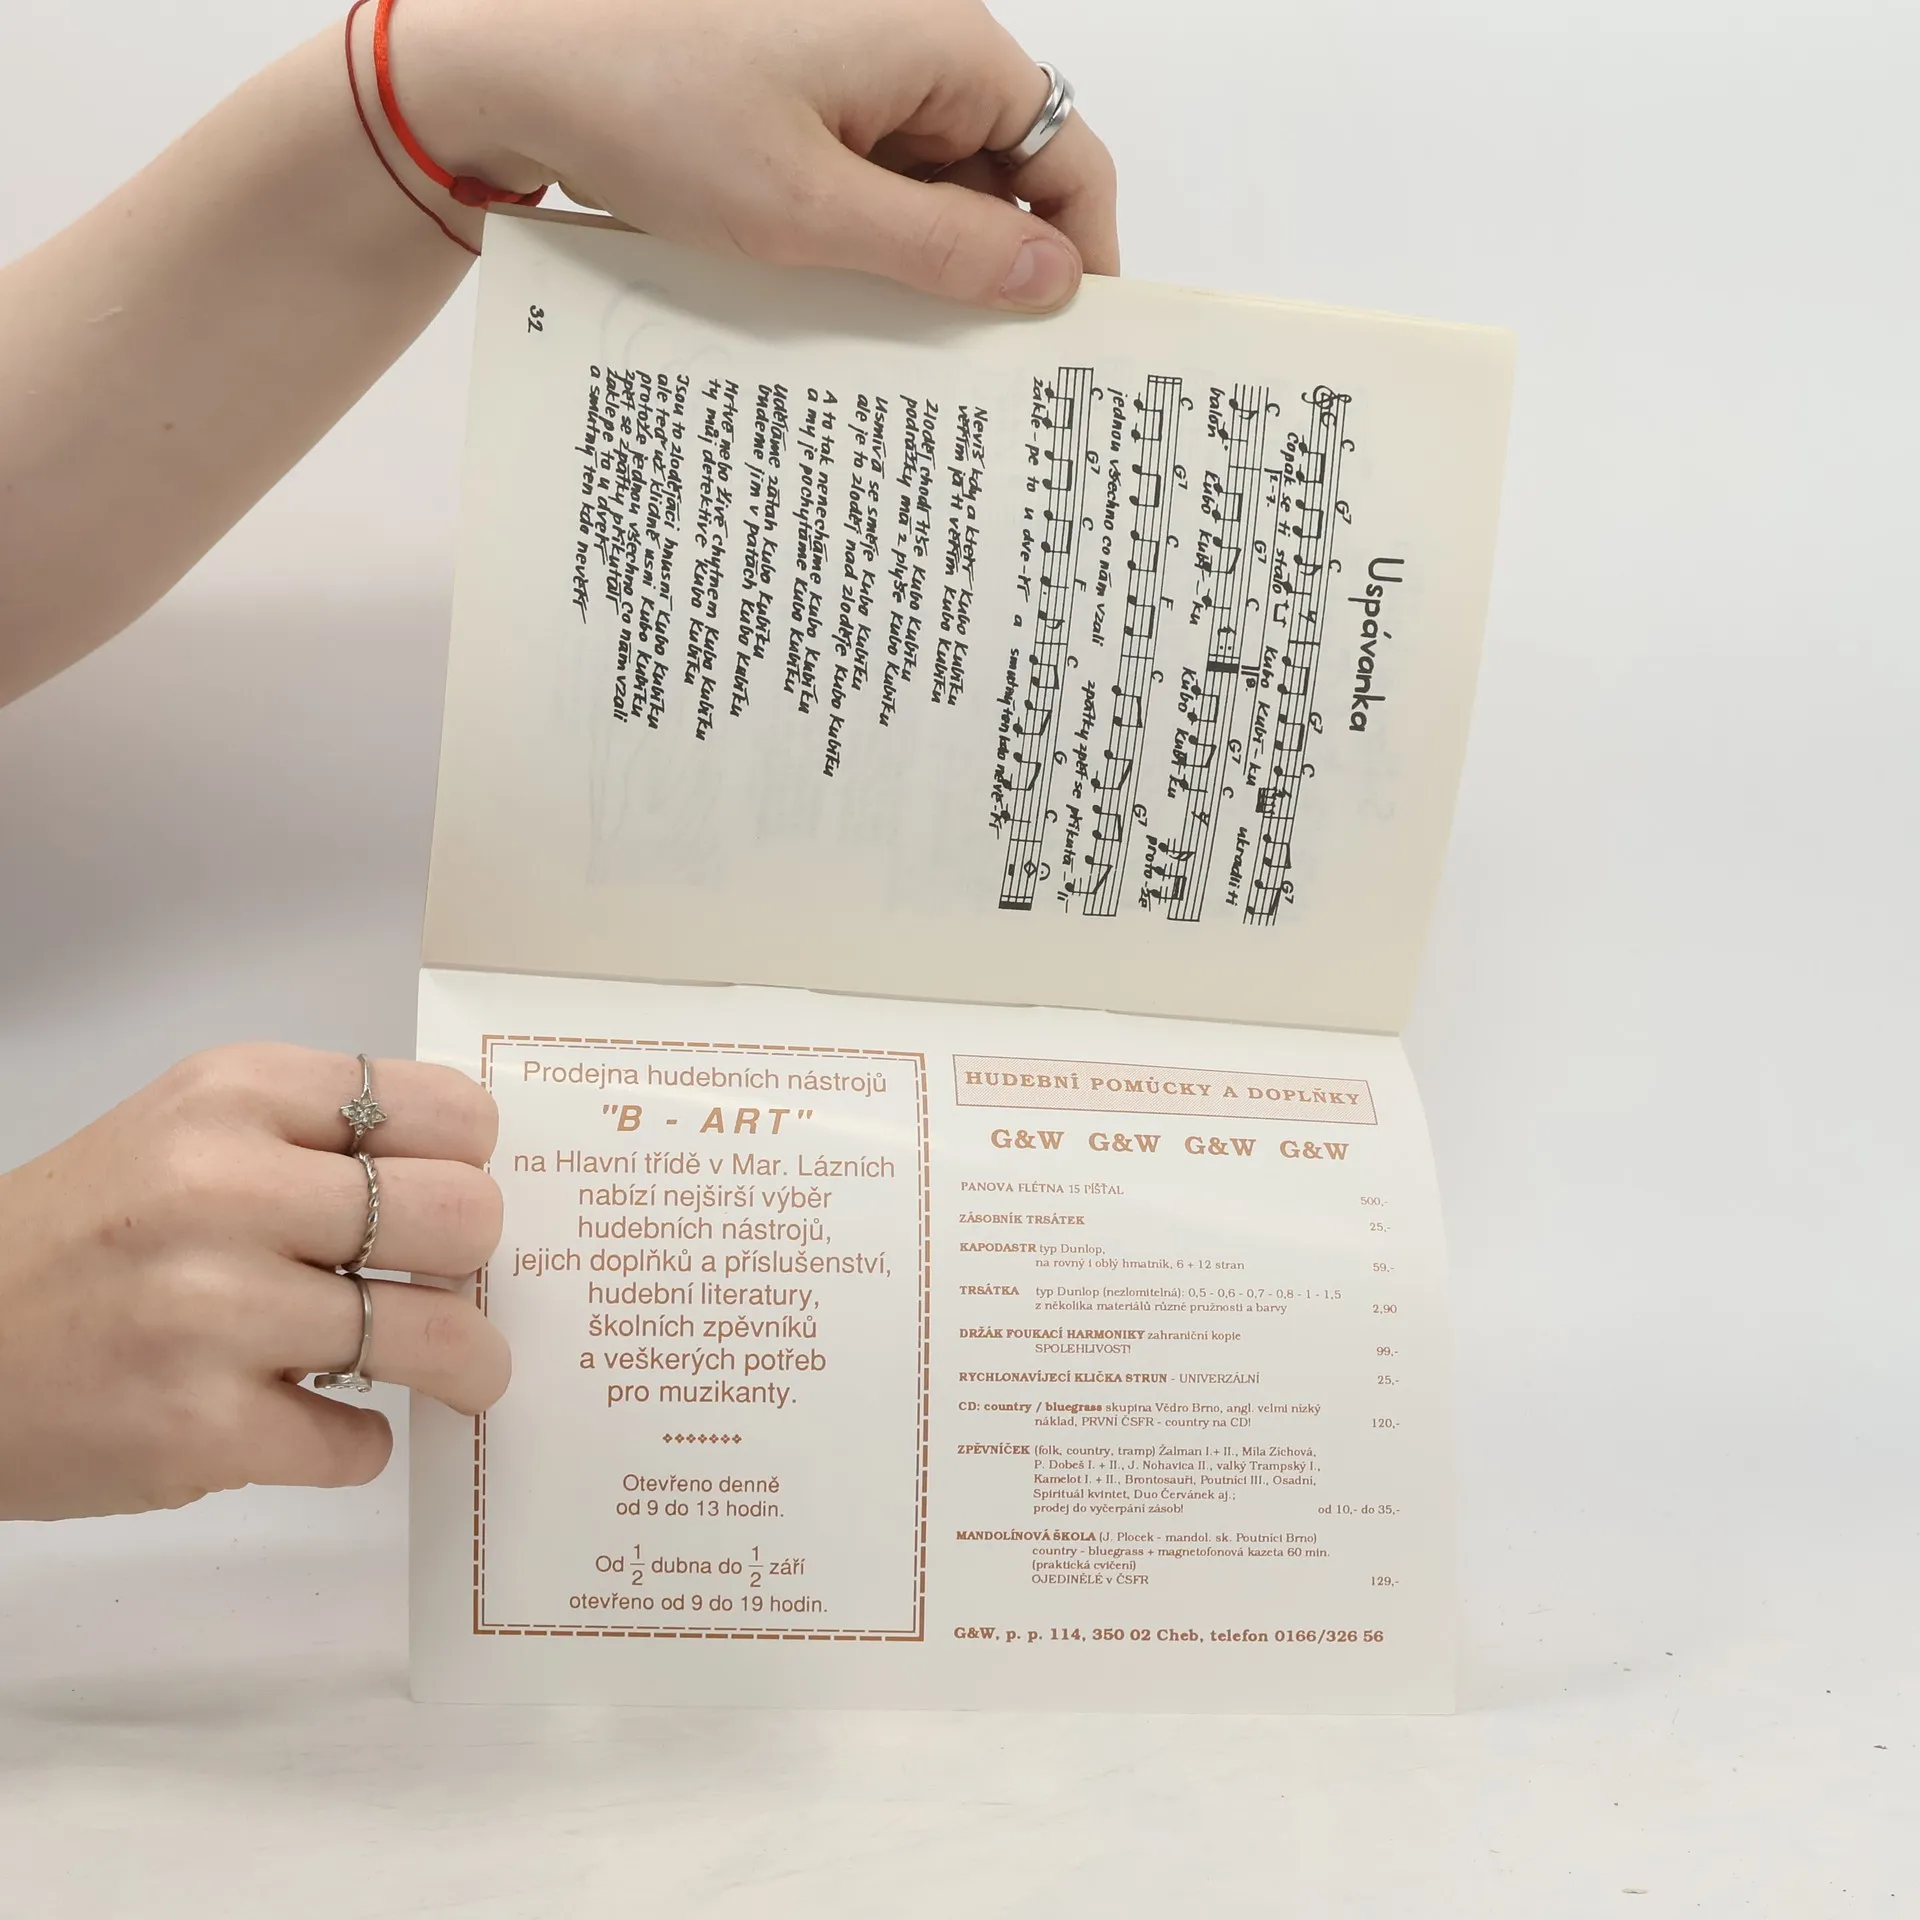 Uspávanka
C G7 C G7 C G7
Copak se ti stalo Kubo Kubí-ku ukradli ti
C 1.-7. G7 C 8. G7 C
balón Kubo Kubí-ku Kubo Kubí-ku proto-že
C G7 C F C G7
jednou všechno co nám vzali zpátky zpět se přikutá-lí
C G7 C F C G C
zakle-pe to u dve-ří a smutný ten kdo nevě-ří
Nevíš kdy a který Kubo Kubíku
věřím já ti věřím Kubo Kubíku
Zloděj chodí tiše Kubo Kubíku
podrážky má z plyše Kubo Kubíku
Usmívá se směje Kubo Kubíku
ale je to zloděj nad zloděje Kubo Kubíku
A to tak nenecháme Kubo Kubíku
a my je pochytáme Kubo Kubíku
Uděláme zátah Kubo Kubíku
budeme jim v patách Kubo Kubíku
Mrtvé nebo živé chytnem Kubo Kubíku
ty můj detektive Kubo Kubíku
Jsou to zlodějáci hnusní Kubo Kubíku
ale teď už klidně usni Kubo Kubíku
protože jednou všechno co nám vzali
zpět se zpátky přikutálí
zaklepe to u dveří
a smutný ten kdo nevěří
32
Prodejna hudebních nástrojů
"B - ART"
na Hlavní třídě v Mar. Lázních
nabízí nejširší výběr
hudebních nástrojů,
jejich doplňků a příslušenství,
hudební literatury,
školních zpěvníků
a veškerých potřeb
pro muzikanty.
Otevřeno denně
od 9 do 13 hodin.
Od 1/2 dubna do 1/2 září
otevřeno od 9 do 19 hodin.
HUDEBNÍ POMŮCKY A DOPLŇKY
G&W G&W G&W G&W
PANOVA FLÉTNA 15 PÍŠŤAL 500,-
ZÁSOBNÍK TRSÁTEK 25,-
KAPODASTR typ Dunlop,
na rovný i oblý hmatník, 6 + 12 stran 59,-
TRSÁTKA typ Dunlop (nezlomitelná): 0,5 - 0,6 - 0,7 - 0,8 - 1 - 1,5
z několika materiálů různé pružnosti a barvy 2,90
DRŽÁK FOUKACÍ HARMONIKY zahraniční kopie
SPOLEHLIVOST! 99,-
RYCHLONAVÍJECÍ KLIČKA STRUN - UNIVERZÁLNÍ 25,-
CD: country / bluegrass skupina Vědro Brno, angl. velmi nízký
náklad, PRVNÍ ČSFR - country na CD! 120,-
ZPĚVNÍČEK (folk, country, tramp) Žalman I.+ II., Míla Zichová,
P. Dobeš I. + II., J. Nohavica II., valký Trampský I.,
Kamelot I. + II., Brontosauři, Poutníci III., Osadní,
Spirituál kvintet, Duo Červánek aj.;
prodej do vyčerpání zásob! od 10,- do 35,-
MANDOLÍNOVÁ ŠKOLA (J. Plocek - mandol. sk. Poutníci Brno)
country - bluegrass + magnetofonová kazeta 60 min.
(praktická cvičení)
OJEDINĚLÉ v ČSFR 129,-
G&W, p. p. 114, 350 02 Cheb, telefon 0166/326 56